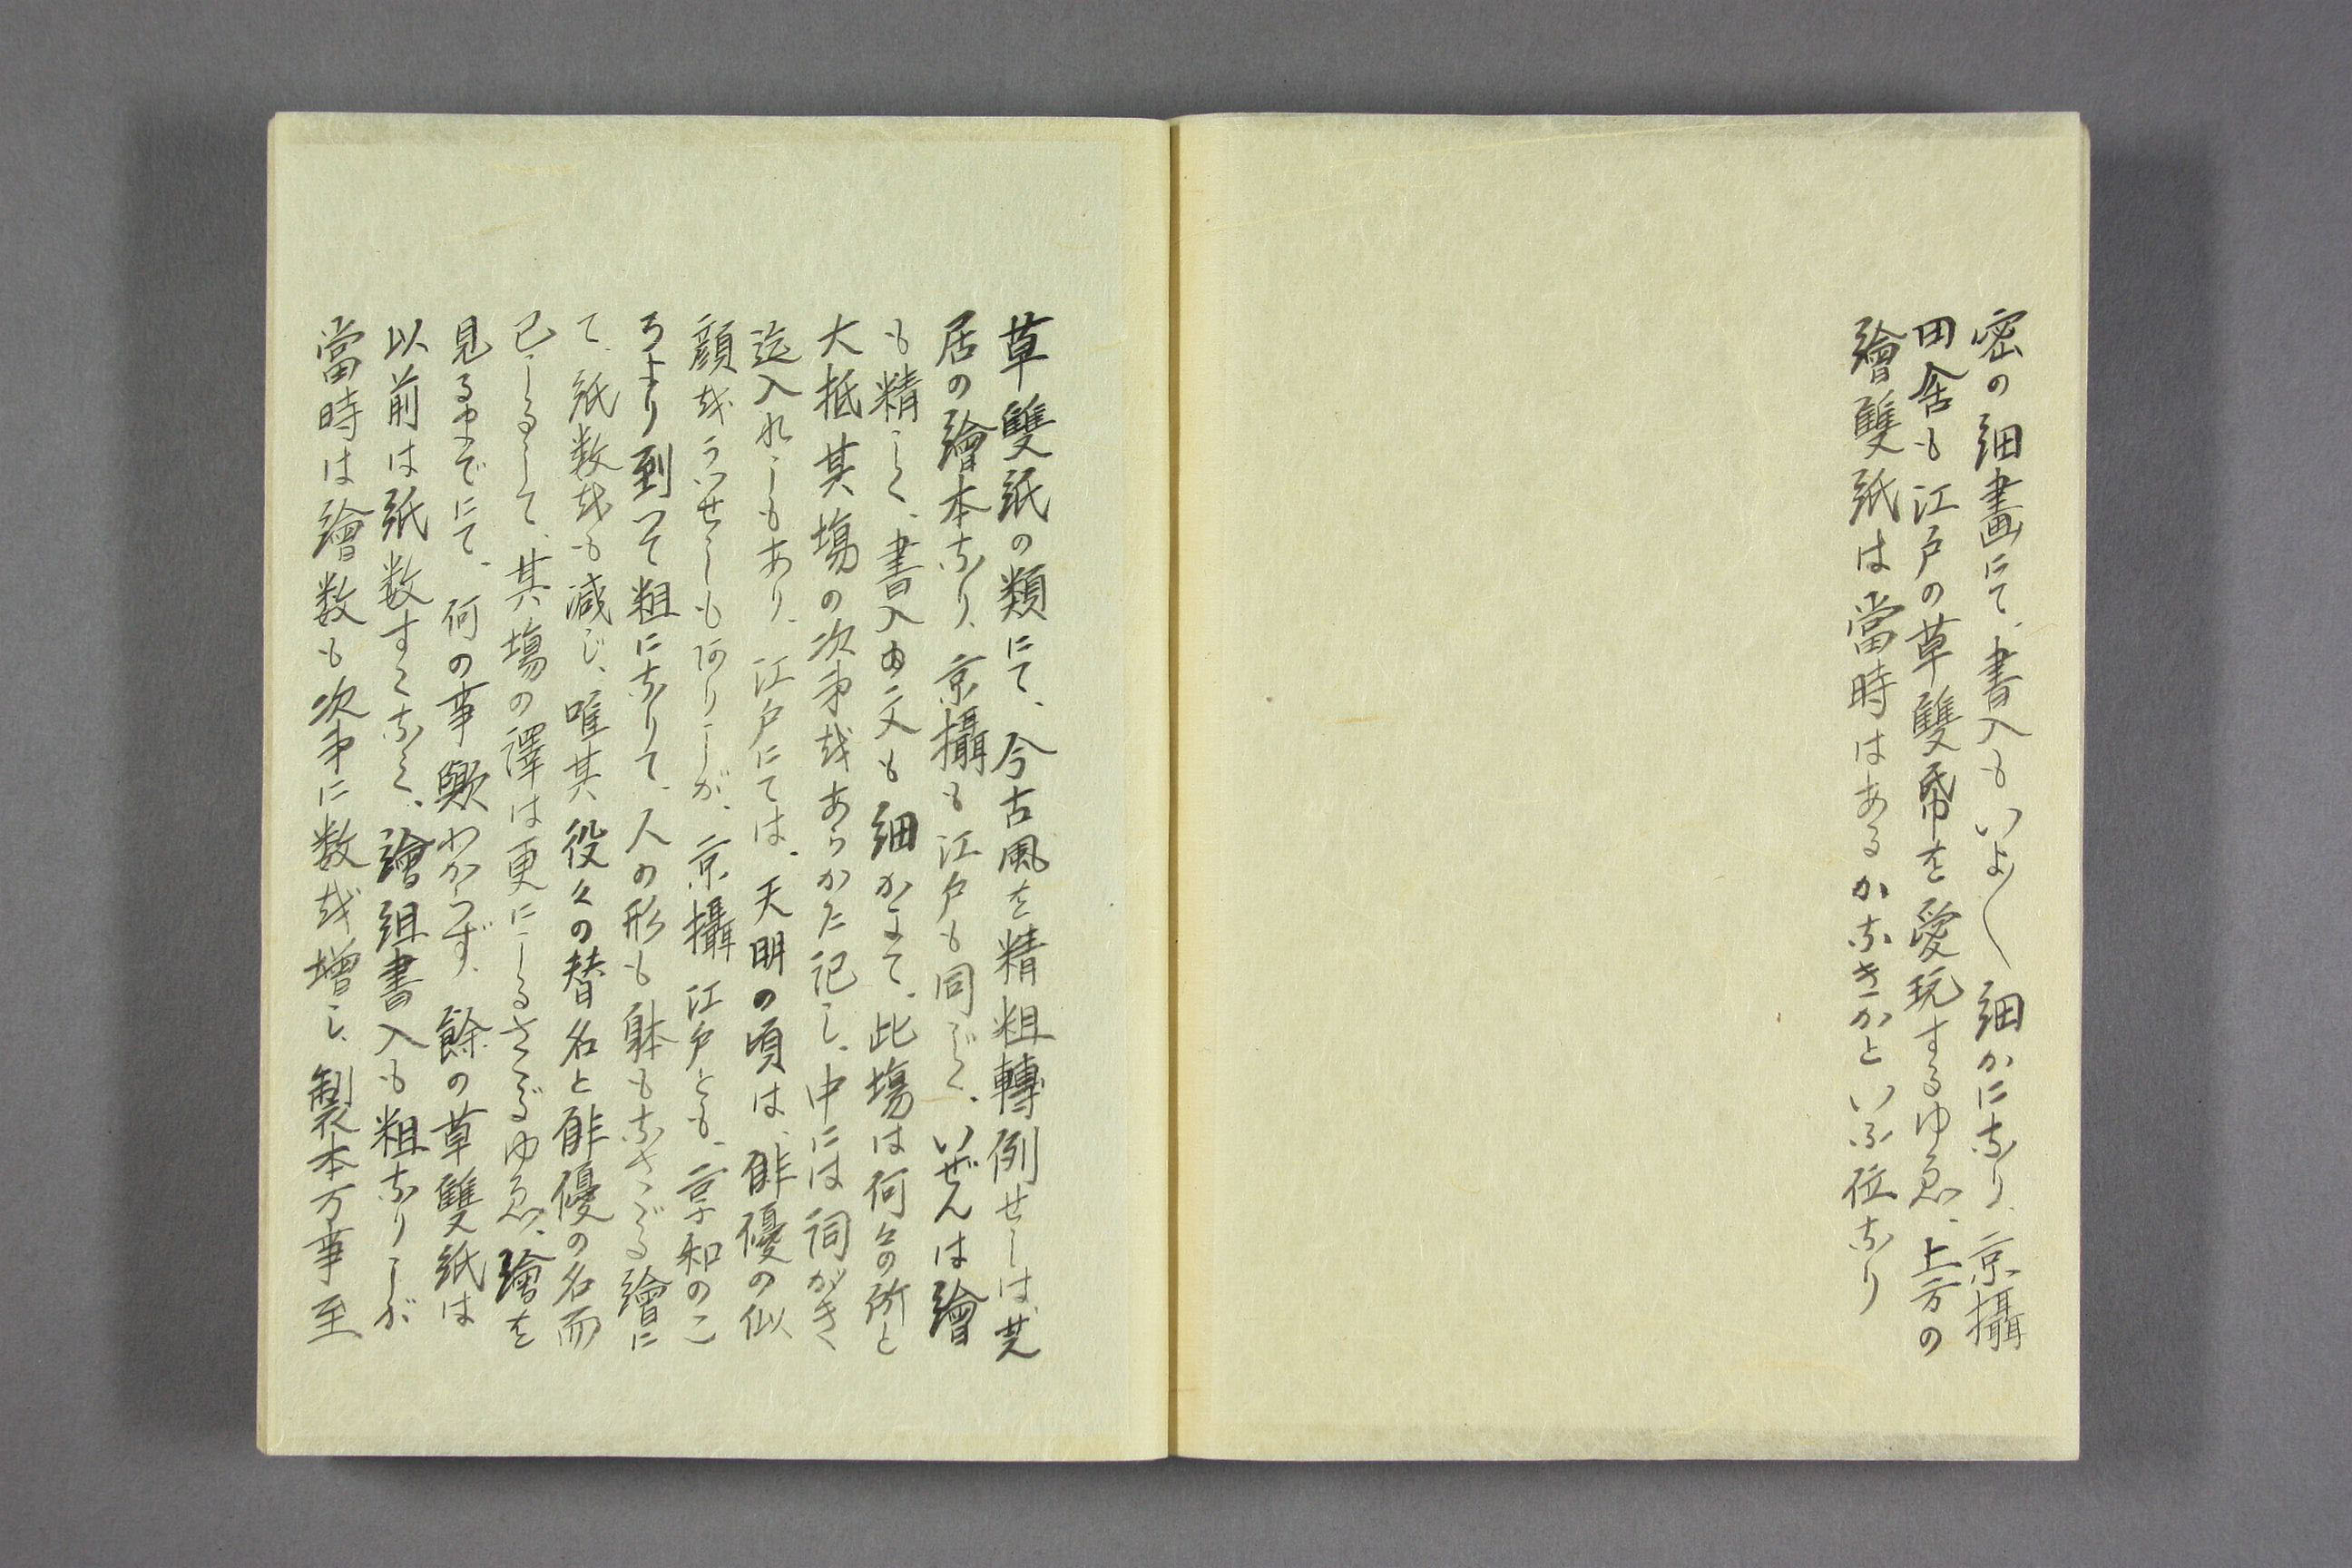 草雙紙の類にて、今古風を精粗轉例せしは芝
居の繪本なり、京攝も江戸も同じく、いぜんは繪
も精しく、書入の文も細かにて、此塲は何々の所と
大抵其塲の次第をあらかた記し、中には詞がき
迄入れしもあり、江戸にては、天明の頃は、俳優の似
顔をうつせしも有りしが、京攝江戸とも、享和のこ
ろより到つて粗になりて、人の形も躰もなさゞる繪に
て、紙数をも減じ、唯其役々の替名と俳優の名而
已しるして、其塲の譯は更にしるさゞるゆゑ、繪を
見るまでにて、何の事歟わからず、餘の草雙紙は
以前は紙数すくなく、繪組書入も粗なりしが
當時は繪数も次第に数を増し、製本万事至
密の細畫にて、書入もいよ〳〵細かになり、京攝
田舎も江戸の草雙帋を愛玩するゆゑ、上方の
繪雙紙は當時はあるかなきかといふ位なり